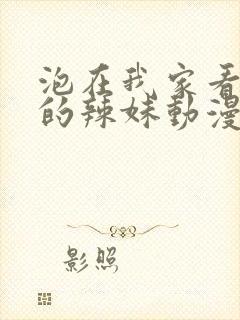 泡在我家看
的辣妹動漫
影照